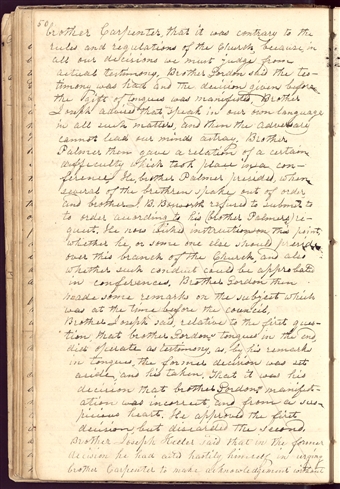 50
brother Carpenter, that it was contrary to the
rules and regulations of the Church, because in
all our decisions we must judge from
actual testimony, Brother Gordon said the tes-
timony was had and the decision given before
the gift of tongues was manifested, Brother
Joseph advised that speak in our own language
in all such matters, and then the adversary
cannot lead our minds astray. Brother
Palmer then gave a relation of a certain
difficulty which took place in a con-
ference he, brother Palmer presided, when
several of the brethren spoke out of order
and brother J. B. Bosworth refused to submit to
to order according to his (brother Palmers) re-
quest, He now asked instruction on this point,
whether he, or some one else should preside
over this branch of the Church, and also
whether such conduct could be approbated
in conferences, Brother Gordon then
made some remarks on the subject which
was at the time before the council,
Brother Joseph said, relative to the first ques-
tion, that brother Gordons tongues in the end,
did operate as testimony, as, by his remarks
in tongues, the former decision was set
aside, and his taken, That it was his
decision that brother Gordons manifest-
ation was incorrect, and from a sus-
picious heart. He approved the first
decision, but discarded the second.
Brother Joseph Keeler said that in the former
decision he had acted hastily, himself, in urging
brother Carpenter to make acknowledgement without